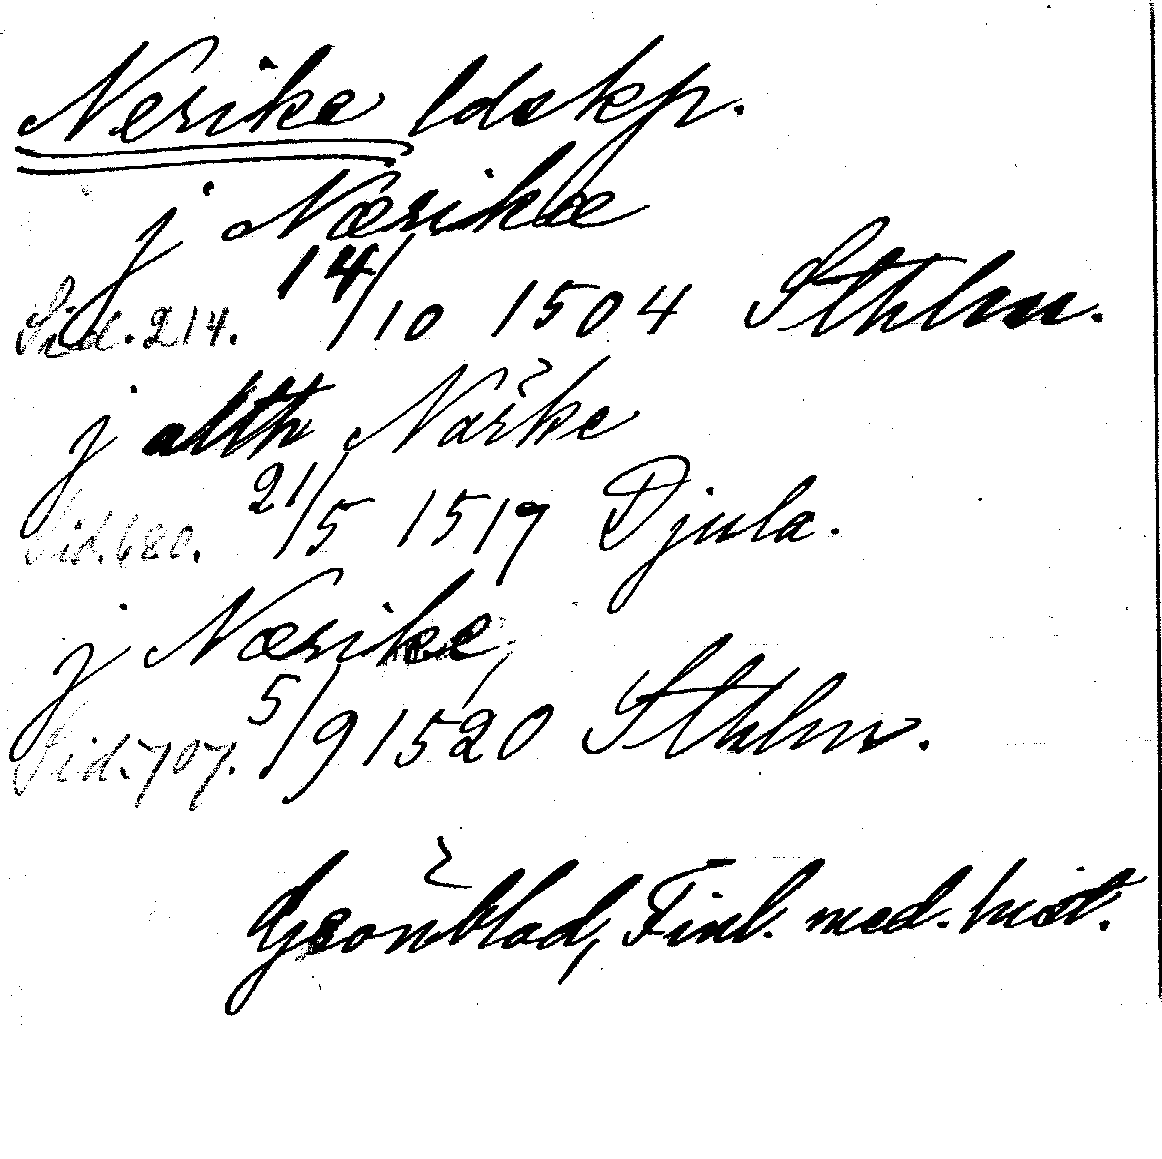 Nerike ldskp.
j Nærikæ
Sid. 214. 14/10 1504 Sthlm.
j alth Närike
Sid. 680. 21/5 1517 Djula.
j Nærike
Sid. 707. 5/9 1520 Sthlm.
Grönblad, Finl. med. hist.